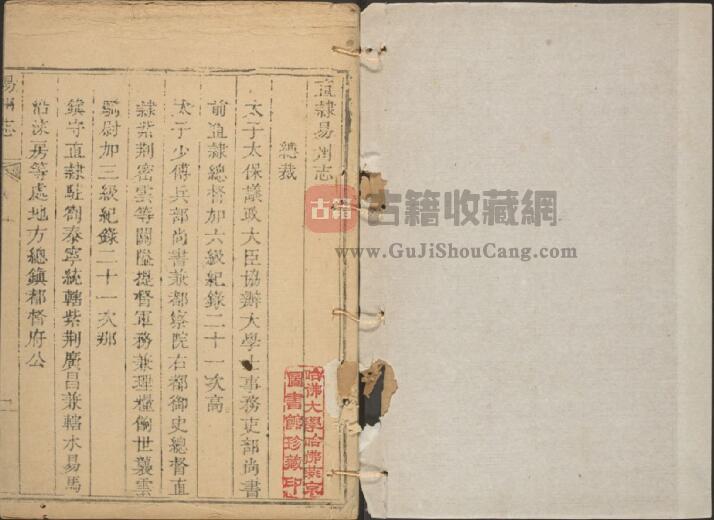 直隷易州志
總裁
太子太保議政大臣協辦大學士事務吏部尚書
前直隷總督加六級紀錄二十一次高
太子少傅兵部尚書兼都察院右都御史總督直
隷紫荆密雲等關隘提督軍務兼理糧餉世襲雲
騎尉加三級紀錄二十一次那
鎮守直隷駐劄泰寧統轄紫荆廣昌兼轄水易馬
沿涞房等處地方總鎮都督府公
易州志
一
古籍
古籍收藏網
www.GuJiShouCang.com
哈佛大學哈佛燕京
圖書館珍藏印